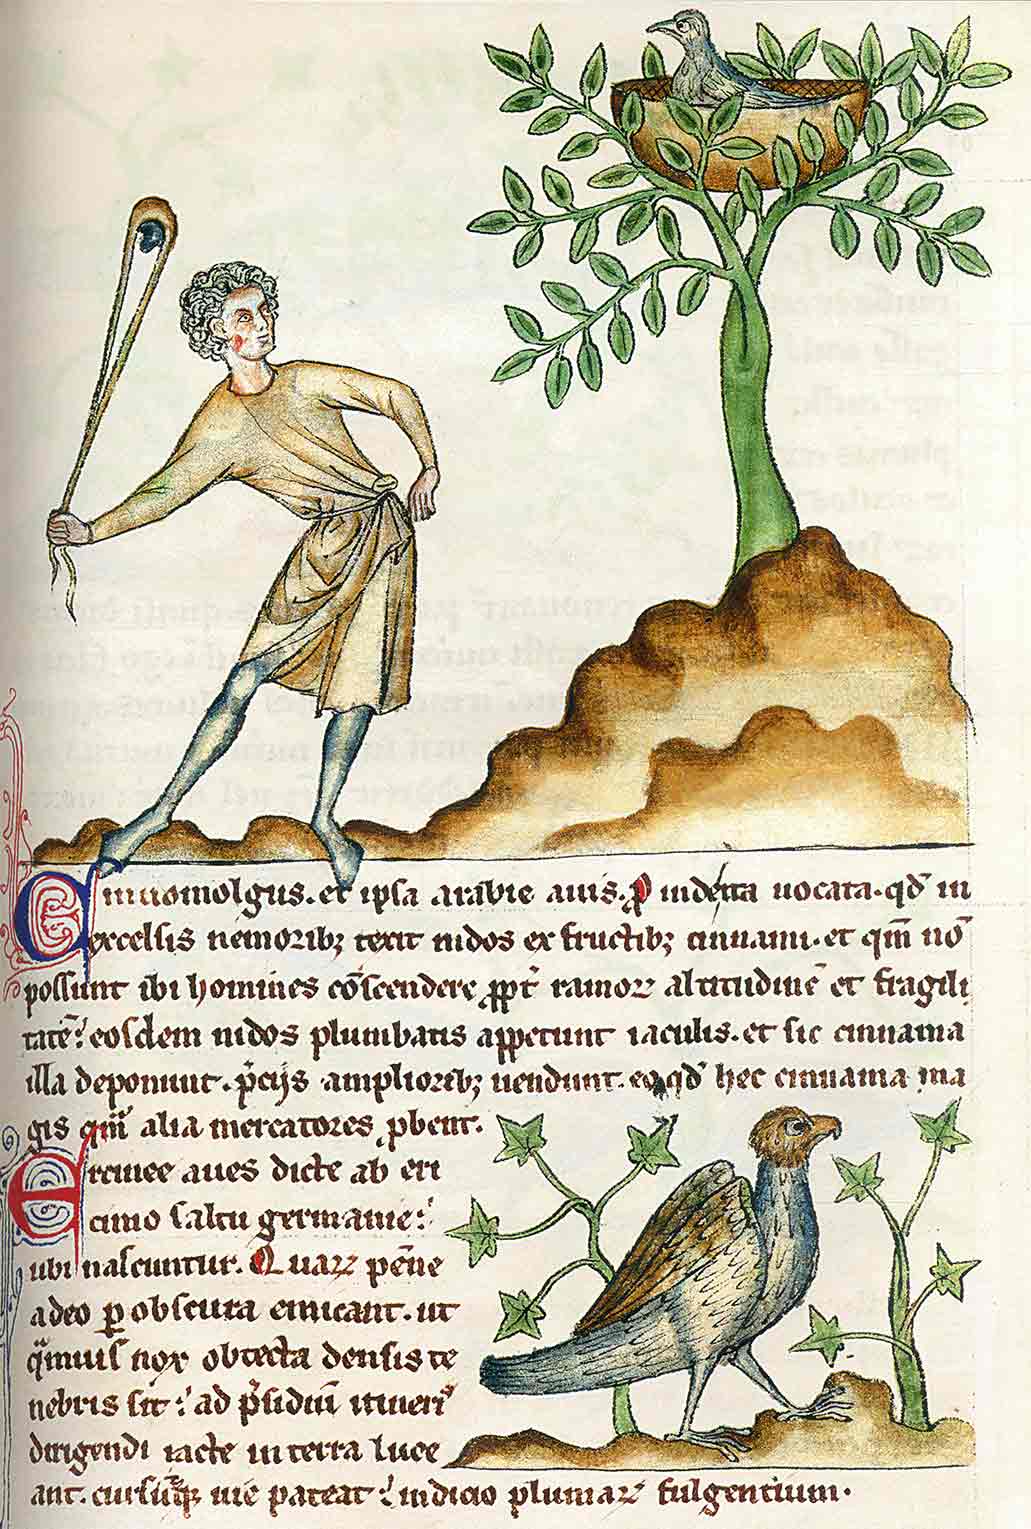 Cinnomolgus. et ipsa arabie auis. p͛ indetta uocata. qd̛ in
excelsis nemorib; texit nidos ex fructib; cinnami. et qm̄ nō
possunt ibi homines cōscendere ꝓpt̛ ramoꝝ altitudinē et fragili
tatē: eosdem nidos plumbatis appetunt iaculis. et sic cinnama
illa deponunt. p̄cijs amplioribꝫ uendunt. eo qd̛ hec cinnama ma
gis qm̄ alia mercatores ꝓbent.
Ercinee aues dicte ab eri
cinio saltu germanie:
ubi nascuntur. Quaꝝ pēne
adeo ꝑ obscura emicant. ut
qͣmuis nox obtecta densis te
nebris sit: ad p̄sidiū itineris
dirigendi iacte in terra luce
ant. cursusqꝫ uie pateat: indicio plumaꝝ fulgentium.